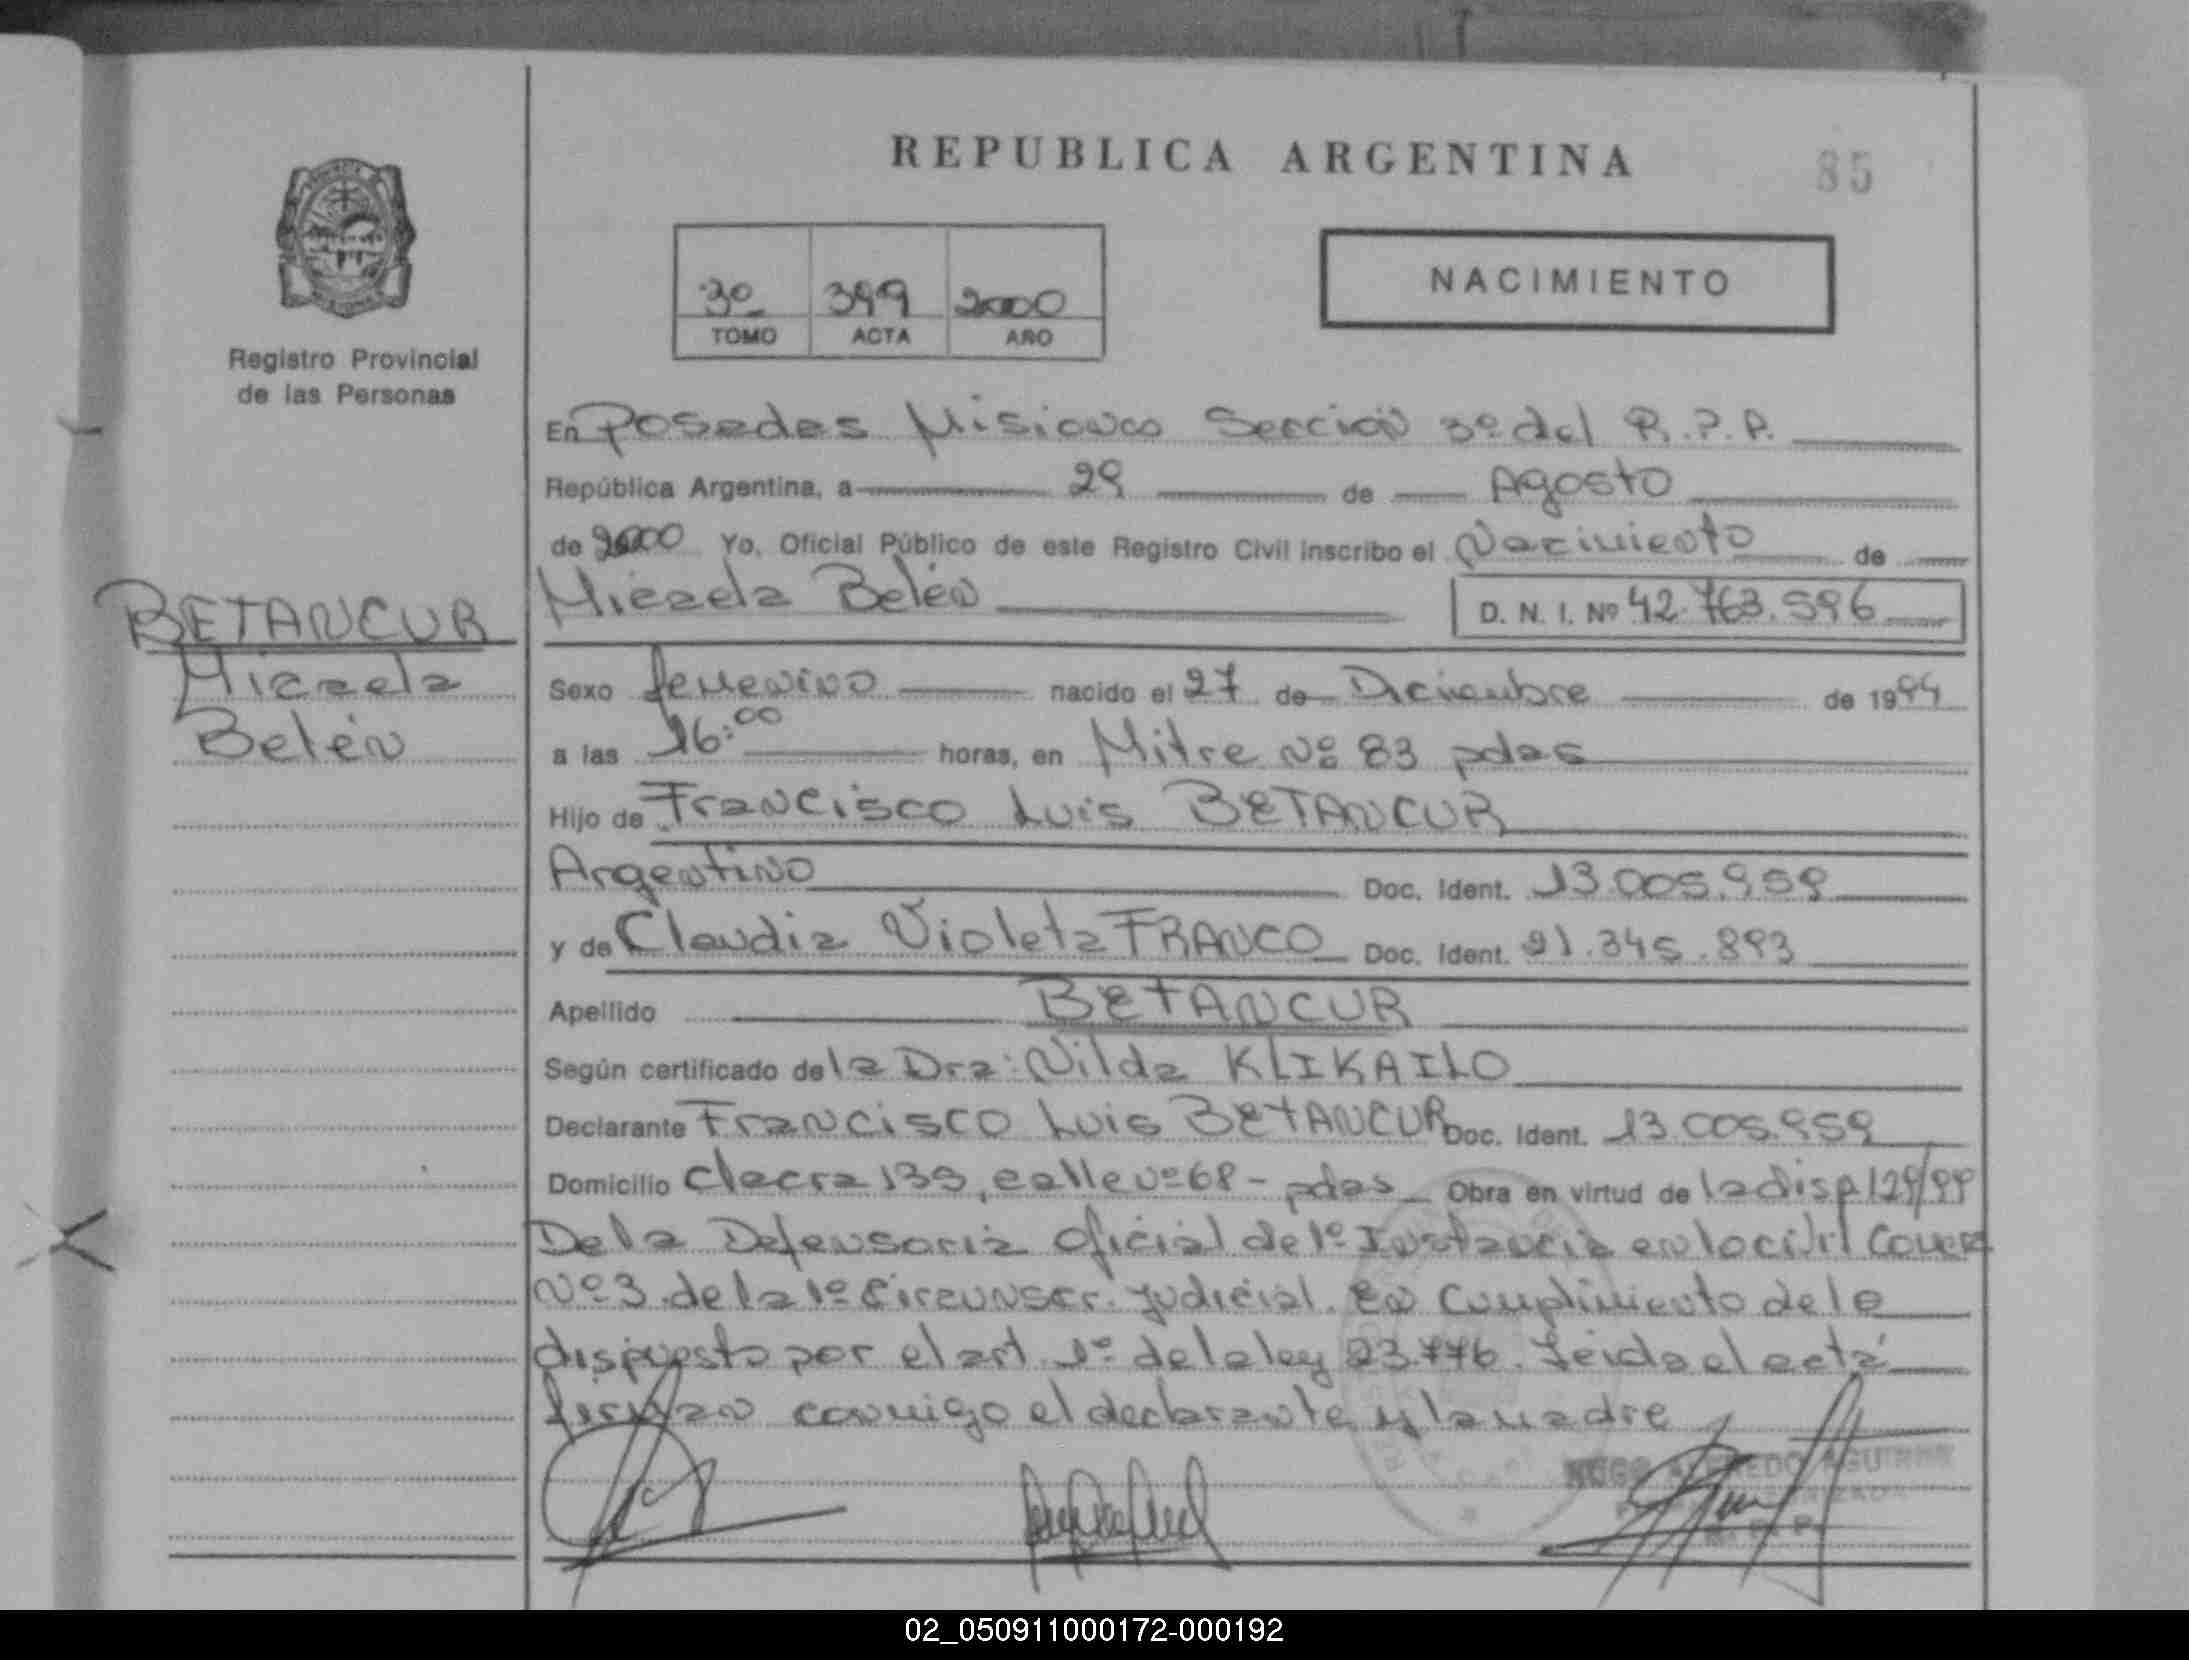 REPUBLICA ARGENTINA
85
3º 399 2000
TOMO ACTA AÑO
NACIMIENTO
Registro Provincial
de las Personas
En Posadas Misiones Sección 3º del R.P.P.
República Argentina, a 29 de Agosto
de 2000 Yo, Oficial Público de este Registro Civil inscribo el Nacimiento de
Micaela Belén D. N. I. Nº 42.763.596
BETANCUR
Micaela
Belén
Sexo femenino nacido el 27 de Diciembre de 1994
a las 16:00 horas, en Mitre Nº 83 pdas
Hijo de Francisco Luis BETANCUR
Argentino Doc. Ident. 13.005.959
y de Claudia Violeta FRANCO Doc. Ident. 21.345.893
Apellido BETANCUR
Según certificado de la Dra: Nilda KLIKAILO
Declarante Francisco Luis BETANCUR Doc. Ident. 13.005.959
Domicilio chacra 139, calle nº 68 - pdas Obra en virtud de la disp 129/99
De la Defensoria Oficial de 1º Instancia en lo civil Comer
Nº 3 de la 1º Circunscr. Judicial. En Cumplimiento de lo
dispuesto por el art 1º de la ley 23.776. Leida el acta
firman conmigo el declarante y la madre
HUGO ALFREDO AGUIRRE
R. P. P.
02_050911000172-000192